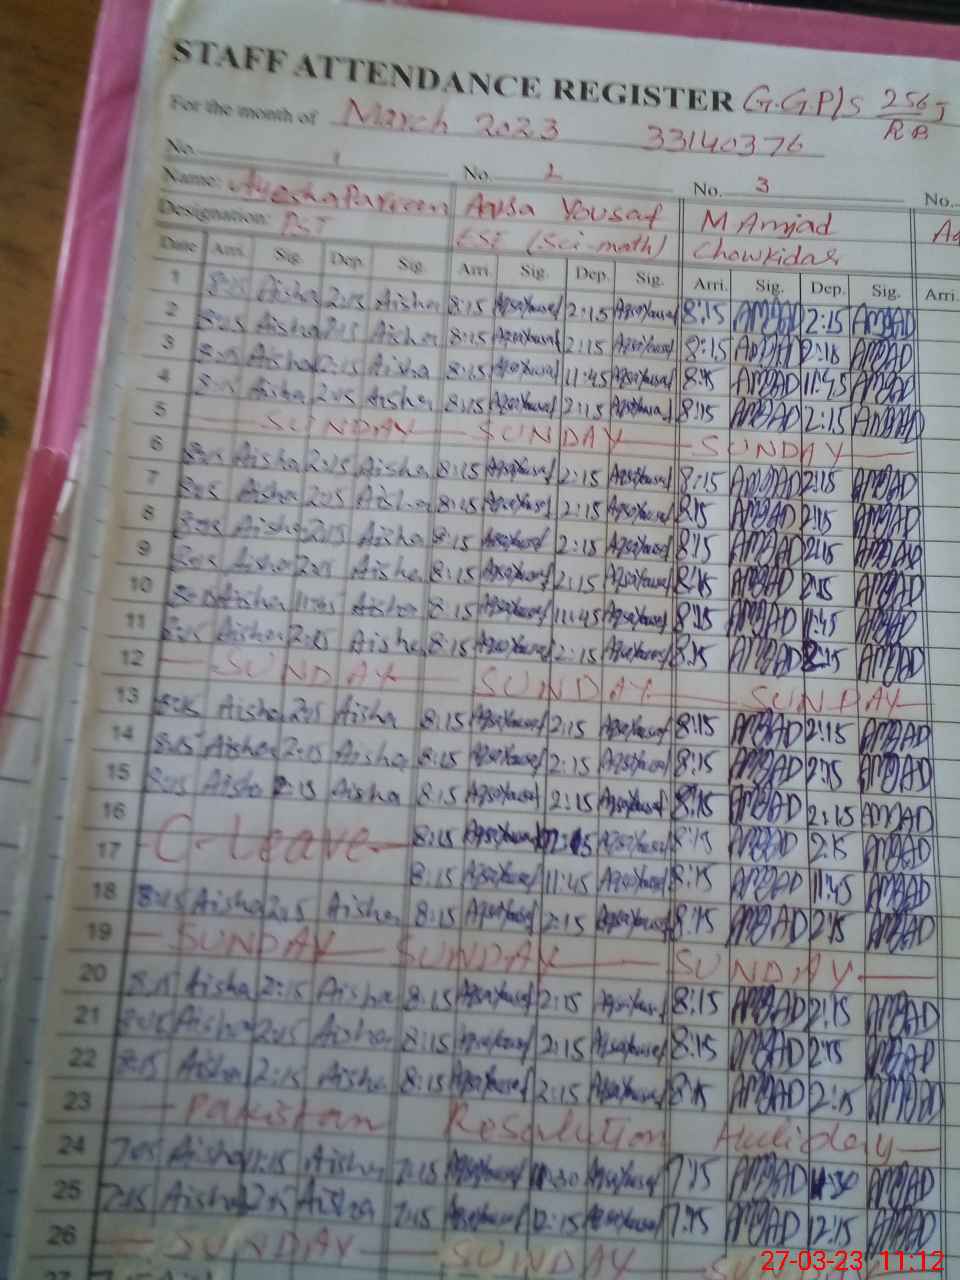 STAFF ATTENDANCE REGISTER G.G.P/S 256
RB
For the month of March 2023 33140376
No. 1 No. 2 No. 3 No.
Name: Ayesha Parveen Aqsa Yousaf M Amjad
Designation: PST ESE (Sci-math) Chowkidar
Date Arri. Sig. Dep. Sig. Arri. Sig. Dep. Sig. Arri. Sig. Dep. Sig. Arri.
1 8:15 Aisha 2:15 Aisha 8:15 AqsaYousaf 2:15 AqsaYousaf 8:15 AMJAD 2:15 AMJAD
2 8:15 Aisha 2:15 Aisha 8:15 AqsaYousaf 2:15 AqsaYousaf 8:15 AMJAD 2:15 AMJAD
3 8:15 Aisha Aisha 8:15 AqsaYousaf 11:45 AqsaYousaf 8:15 AMJAD 11:45 AMJAD
4 8:15 Aisha 2:15 Aisha 8:15 AqsaYousaf 2:15 AqsaYousaf 8:15 AMJAD 2:15 AMJAD
5 SUNDAY SUNDAY SUNDAY
6 8:15 Aisha 2:15 Aisha 8:15 AqsaYousaf 2:15 AqsaYousaf 8:15 AMJAD 2:15 AMJAD
7 8:15 Aisha 2:15 Aisha 8:15 AqsaYousaf 2:15 AqsaYousaf 8:15 AMJAD 2:15 AMJAD
8 8:15 Aisha 2:15 Aisha 8:15 AqsaYousaf 2:15 AqsaYousaf 8:15 AMJAD 2:15 AMJAD
9 8:15 Aisha 2:15 Aisha 8:15 AqsaYousaf 2:15 AqsaYousaf 8:15 AMJAD 2:15 AMJAD
10 8:15 Aisha 11:45 Aisha 8:15 AqsaYousaf 11:45 AqsaYousaf 8:15 AMJAD 11:45 AMJAD
11 8:15 Aisha 2:15 Aisha 8:15 AqsaYousaf 2:15 AqsaYousaf 8:15 AMJAD 2:15 AMJAD
12 SUNDAY SUNDAY SUNDAY
13 8:15 Aisha 2:15 Aisha 8:15 AqsaYousaf 2:15 AqsaYousaf 8:15 AMJAD 2:15 AMJAD
14 8:15 Aisha 2:15 Aisha 8:15 AqsaYousaf 2:15 AqsaYousaf 8:15 AMJAD 2:15 AMJAD
15 8:15 Aisha 2:15 Aisha 8:15 AqsaYousaf 2:15 AqsaYousaf 8:15 AMJAD 2:15 AMJAD
16 C-Leave 8:15 AqsaYousaf AqsaYousaf 8:15 AMJAD 2:15 AMJAD
17 8:15 AqsaYousaf 11:45 AqsaYousaf 8:15 AMJAD 11:45 AMJAD
18 8:15 Aisha 2:15 Aisha 8:15 AqsaYousaf 2:15 AqsaYousaf 8:15 AMJAD 2:15 AMJAD
19 SUNDAY SUNDAY SUNDAY
20 8:15 Aisha 2:15 Aisha 8:15 AqsaYousaf 2:15 AqsaYousaf 8:15 AMJAD 2:15 AMJAD
21 8:15 Aisha 2:15 Aisha 8:15 AqsaYousaf 2:15 AqsaYousaf 8:15 AMJAD 2:15 AMJAD
22 8:15 Aisha 2:15 Aisha 8:15 AqsaYousaf 2:15 AqsaYousaf 8:15 AMJAD 2:15 AMJAD
23 Pakistan Resolution Holiday
24 Aisha Aisha 7:15 AqsaYousaf AqsaYousaf 7:15 AMJAD AMJAD
25 7:15 Aisha Aisha 7:15 AqsaYousaf 12:15 AqsaYousaf 7:15 AMJAD 12:15 AMJAD
26 SUNDAY SUNDAY
27-03-23 11:12